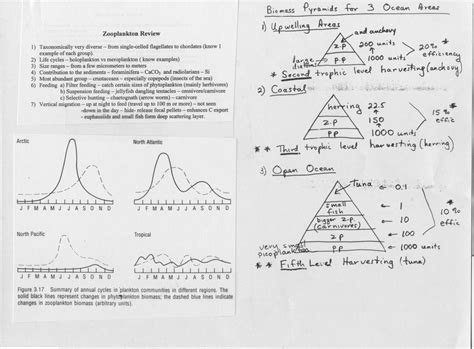 Zooplankton Review
1) Taxonomically very diverse – from single-celled flagellates to chordates (know 1
example of each group).
2) Life cycles – holoplankton vs meroplankton (know examples)
3) Size ranges – from a few micrometers to meters
4) Contribution to the sediments – foraminifera – CaCO₃ and radiolarians – Si
5) Most abundant group – crustaceans – especially copepods (insects of the sea)
6) Feeding a) Filter feeding – catch certain sizes of phytoplankton (mainly herbivores)
b) Suspension feeding – jellyfish dangling tentacles – omnivore/carnivores
c) Selective hunting – chaetognath (arrow worms) – carnivore
7) Vertical migration – up at night to feed (travel up to 100 m or more) – not seen
-down in the day – hide- release fecal pellets – enhances C export
- euphausiids and small fish form deep scattering layer.
Arctic
North Atlantic
J F M A M J J A S O N D
J F M A M J J A S O N D
North Pacific
Tropical
J F M A M J J A S O N D
J F M A M J J A S O N D
Figure 3.17 Summary of annual cycles in plankton communities in different regions. The
solid black lines represent changes in phytoplankton biomass; the dashed blue lines indicate
changes in zooplankton biomass (arbitrary units).
Biomass Pyramids for 3 Ocean Areas
1) Upwelling Areas
anchovy
Z.P 200 units
large diatoms P.P 1000 units
20% efficiency
* Second trophic level harvesting (anchovy)
2) Coastal
herring 22.5
150
P.P 1000 units
15% effic
* Third trophic level harvesting (herring)
3) Open Ocean
tuna 0.1
small fish 1
bigger z.p. (carnivores) 10
Z.P 100
very small picoplankton P.P 1000 units
10% effic
** Fifth Level Harvesting (tuna)